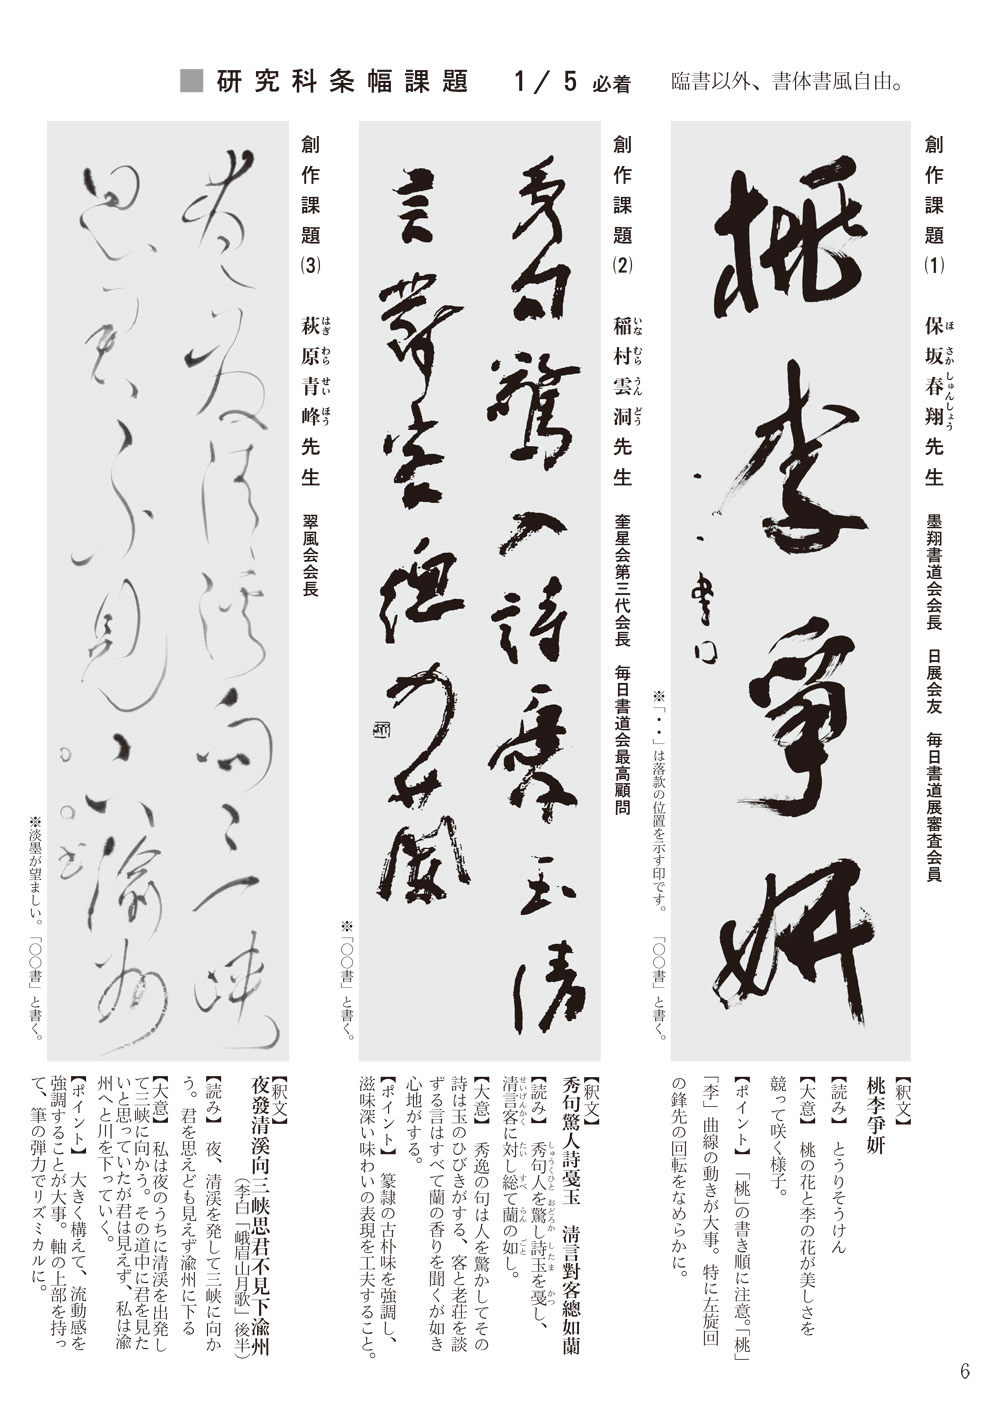 ■研究科条幅課題 1/5 必着 臨書以外、書体書風自由。
創作課題(1) 保坂春翔先生 墨翔書道会会長 日展会友 毎日書道展審査会員
ほ さか しゅん しょう
桃李爭妍
※「・・」は落款の位置を示す印です。 「〇〇書」と書く。
【釈文】
桃李爭妍
【読み】 とうりそうけん
【大意】 桃の花と李の花が美しさを
競って咲く様子。
【ポイント】 「桃」の書き順に注意。「桃」
「李」曲線の動きが大事。特に左旋回
の鋒先の回転をなめらかに。
創作課題(2) 稲村雲洞先生 奎星会第三代会長 毎日書道会最高顧問
いな むら うん どう
秀句驚人詩戞玉清
言對客總如蘭
※「〇〇書」と書く。
【釈文】
秀句驚人詩戞玉 清言對客總如蘭
【読み】 秀句人を驚し詩玉を戞し、
しゅうくひと おどろか したま かつ
清言客に対し総て蘭の如し。
せいげんかく たい すべ らん ごと
【大意】 秀逸の句は人を驚かしてその
詩は玉のひびきがする、客と老荘を談
ずる言はすべて蘭の香りを聞くが如き
心地がする。
【ポイント】 篆隷の古朴味を強調し、
滋味深い味わいの表現を工夫すること。
創作課題(3) 萩原青峰先生 翠風会会長
はぎ わら せい ほう
夜發清溪向三峡
思君不見下渝州
〇〇書
※淡墨が望ましい。「〇〇書」と書く。
【釈文】
夜發清溪向三峡思君不見下渝州
(李白「峨眉山月歌」後半)
【読み】 夜、清渓を発して三峡に向か
う。君を思えども見えず渝州に下る
【大意】 私は夜のうちに清渓を出発し
て三峡に向かう。その道中に君を見た
いと思っていたが君は見えず、私は渝
州へと川を下っていく。
【ポイント】 大きく構えて、流動感を
強調することが大事。軸の上部を持っ
て、筆の弾力でリズミカルに。
6